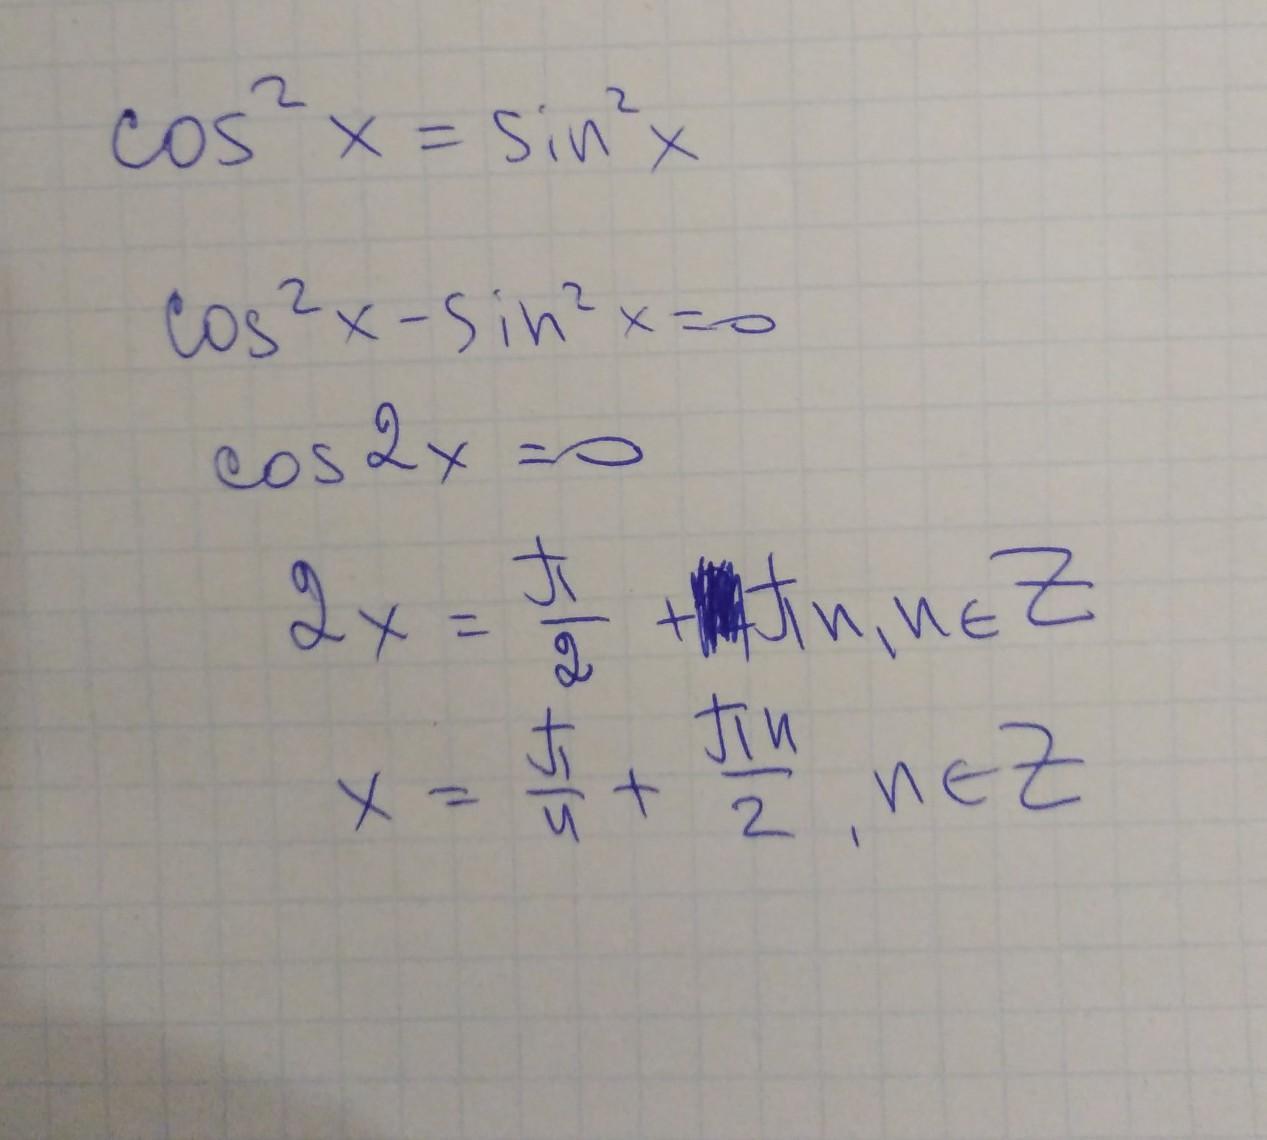 cos² x = sin² x
cos² x - sin² x = 0
cos 2x = 0
2x = π/2 + πn, n ∈ Z
x = π/4 + πn/2, n ∈ Z